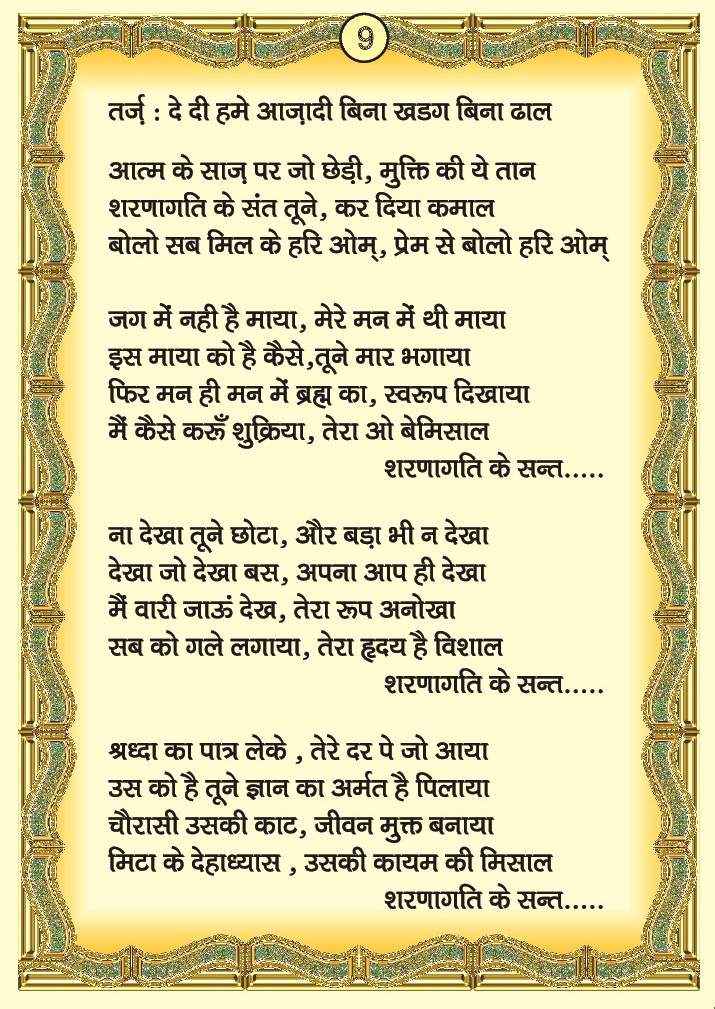 9
तर्ज़ : दे दी हमे आज़ादी बिना खडग बिना ढाल
आत्म के साज़ पर जो छेड़ी, मुक्ति की ये तान
शरणागति के संत तूने, कर दिया कमाल
बोलो सब मिल के हरि ओम्, प्रेम से बोलो हरि ओम्
जग में नही है माया, मेरे मन में थी माया
इस माया को है कैसे,तूने मार भगाया
फिर मन ही मन में ब्रह्म का, स्वरूप दिखाया
मैं कैसे करूँ शुक्रिया, तेरा ओ बेमिसाल
शरणागति के सन्त.....
ना देखा तूने छोटा, और बड़ा भी न देखा
देखा जो देखा बस, अपना आप ही देखा
मैं वारी जाऊं देख, तेरा रूप अनोखा
सब को गले लगाया, तेरा हृदय है विशाल
शरणागति के सन्त.....
श्रध्दा का पात्र लेके , तेरे दर पे जो आया
उस को है तूने ज्ञान का अर्मत है पिलाया
चौरासी उसकी काट, जीवन मुक्त बनाया
मिटा के देहाध्यास , उसकी कायम की मिसाल
शरणागति के सन्त.....